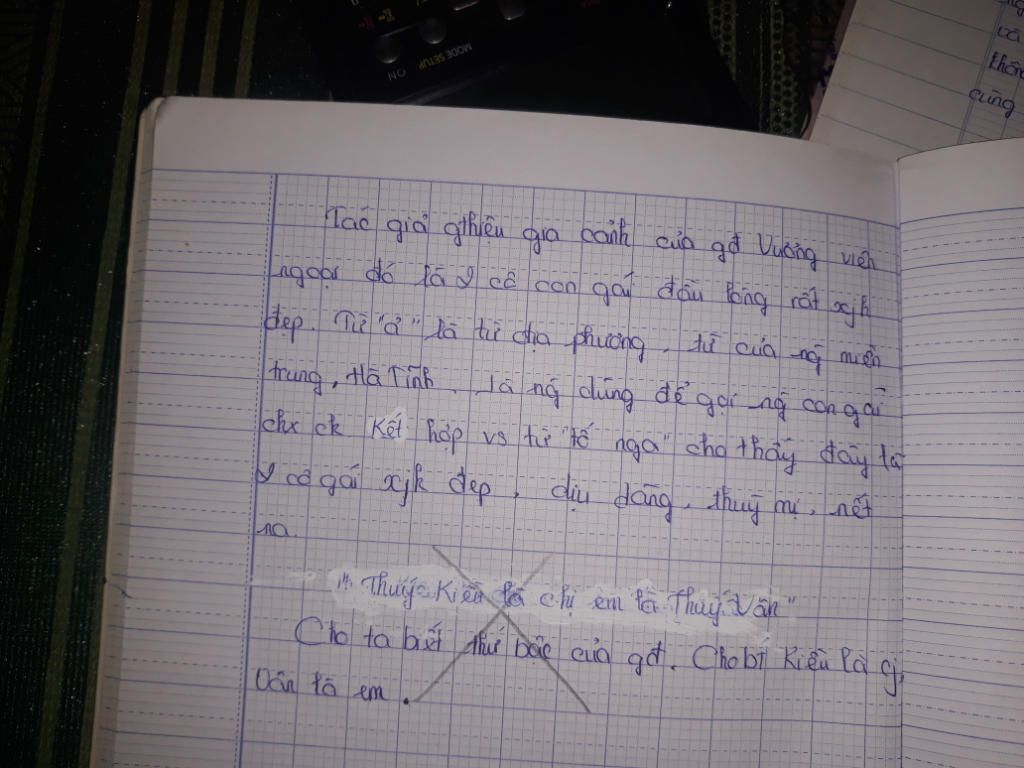 MODE SETUP
ON
cả
không
cũng
Tác giả gthiệu gia cảnh của gđ Vương viên
ngoại đó là 2 cô con gái đầu lòng rất xjh
đẹp. Từ "ả" là từ địa phương, từ của ng̃ miền
trung, Hà Tĩnh là ng̃ dùng để gọi ng̃ con gái
Kết hợp vs từ "tố nga" cho thấy đây là
2 cô gái xjh đẹp, dịu dàng, thuỳ mị, nết
na.
Thuý Kiều là chị em là Thuý Vân"
Cho ta biết thứ bậc của gđ. Cho bt Kiều là cj,
Vân là em.